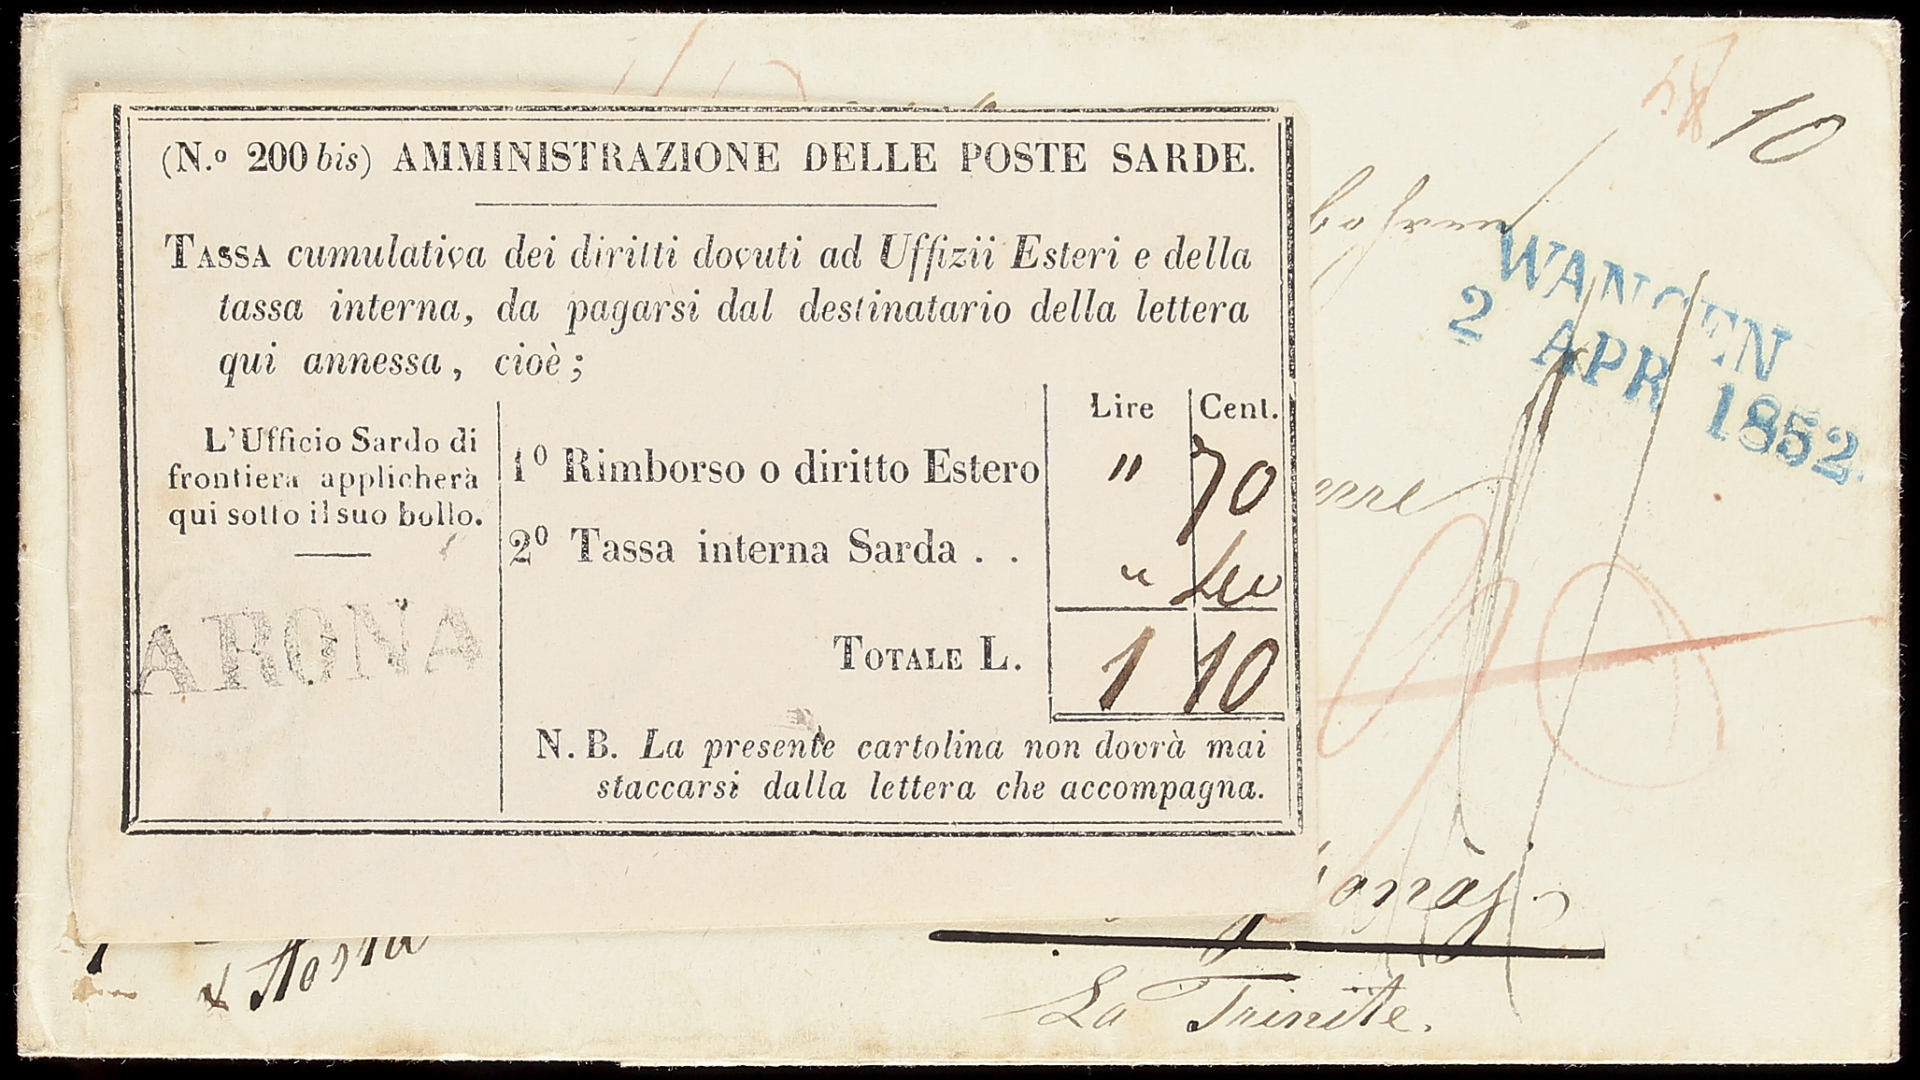 10
(N.º 200 bis) AMMINISTRAZIONE DELLE POSTE SARDE.
TASSA cumulativa dei diritti dovuti ad Uffizii Esteri e della
tassa interna, da pagarsi dal destinatario della lettera
qui annessa, cioè;
L'Ufficio Sardo di
frontiera applicherà
qui sotto il suo bollo.
ARONA
Lire Cent.
1º Rimborso o diritto Estero " 70
2º Tassa interna Sarda . . "
TOTALE L. 1 10
N. B. La presente cartolina non dovrà mai
staccarsi dalla lettera che accompagna.
WANGEN
2 APR 1852
Aosta
La Trinite.